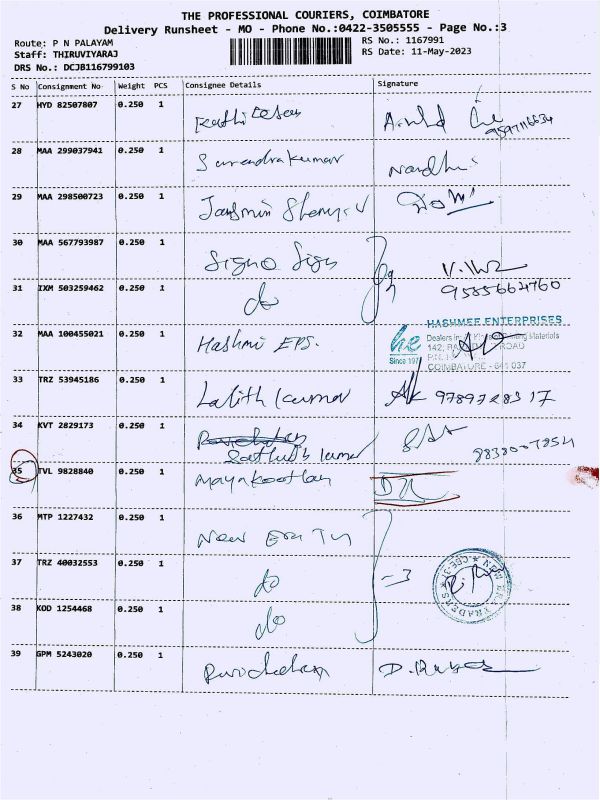 THE PROFESSIONAL COURIERS, COIMBATORE
Delivery Runsheet - MO - Phone No.:0422-3505555 - Page No.:3
Route: P N PALAYAM
RS No.: 1167991
Staff: THIRUVIYARAJ
RS Date: 11-May-2023
DRS No.: DCJB116799103
S No Consignment No Weight PCS Consignee Details Signature
27 HYD 82507807 0.250 1
28 MAA 299037941 0.250 1 Surendrakumar Nandhi
29 MAA 298500723 0.250 1 Jasmin
30 MAA 567793987 0.250 1 Signo Sign
31 IXM 503259462 0.250 1 do 9585662760
HASHMEE ENTERPRISES
32 MAA 100455021 0.250 1 Hashmi EPS. he
Dealers in Materials
142, ROAD
Since 197
COIMBATORE - 641 037
33 TRZ 53945186 0.250 1 Lalith kumar 9789728317
34 KVT 2829173 0.250 1
Sathish kumar 8838007854
35 TVL 9828840 0.250 1
36 MTP 1227432 0.250 1 New Era
37 TRZ 40032553 0.250 1 do -3
TRADERS CBE-37
38 KOD 1254468 0.250 1 do
39 GPM 5243020 0.250 1